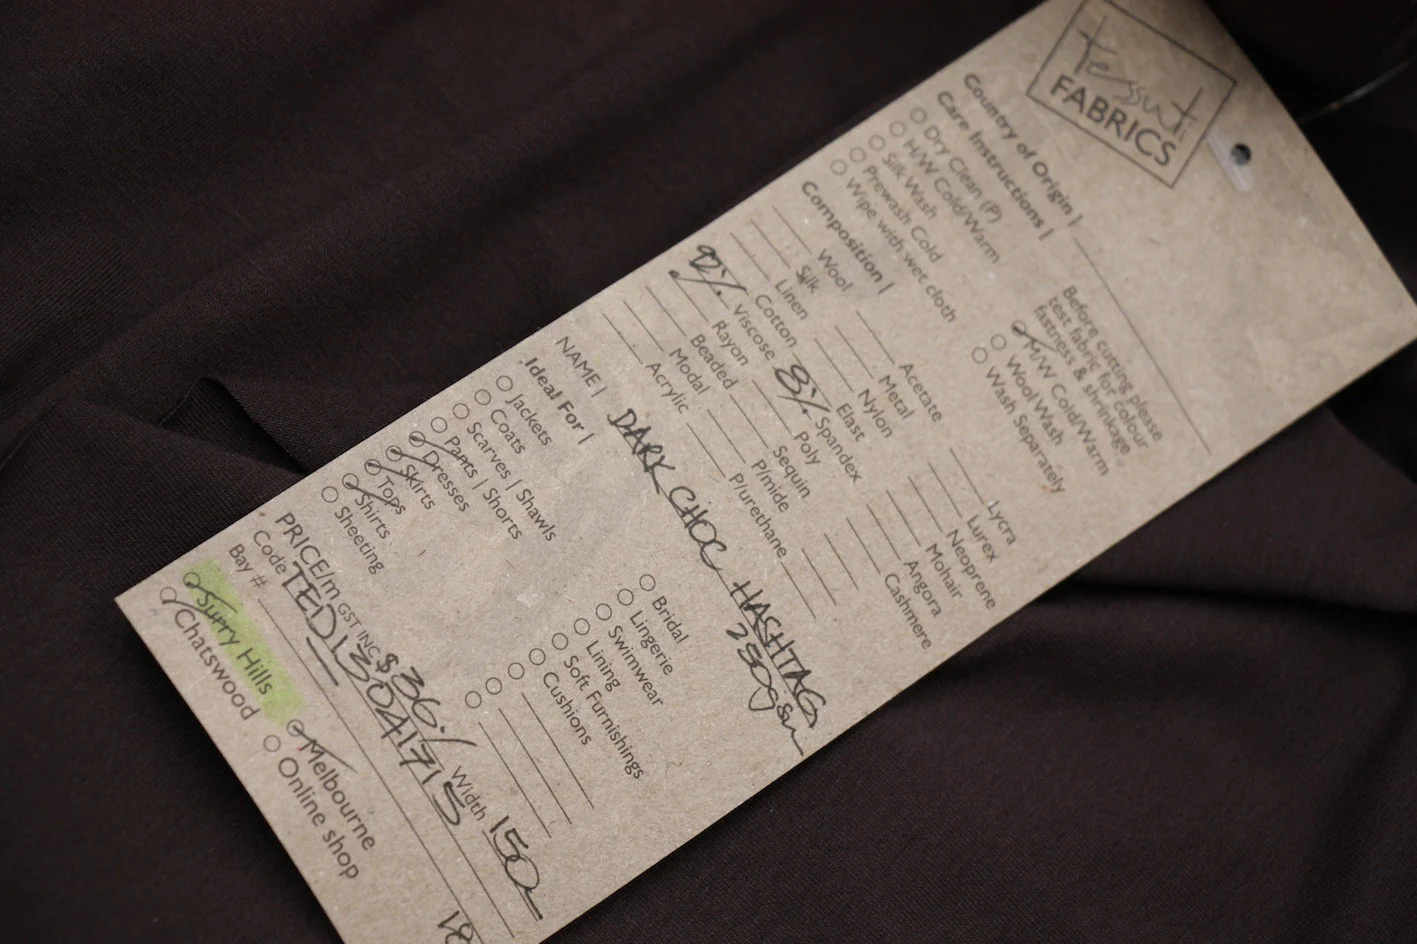 tessuti
FABRICS
Country of Origin |
Care Instructions |
Before cutting please
test fabric for colour
fastness & shrinkage.
Dry Clean (P)
H/W Cold/Warm
Silk Wash
Prewash Cold
Wipe with wet cloth
M/W Cold/Warm
Wool Wash
Wash Separately
Composition |
Wool
Silk
Linen
Cotton
92% Viscose
Rayon
Beaded
Modal
Acrylic
Acetate
Metal
Nylon
Elast
8% Spandex
Poly
Sequin
P/mide
P/urethane
Lycra
Lurex
Neoprene
Mohair
Angora
Cashmere
NAME | DARK CHOC HASHTAG
250gsm
Ideal For |
Jackets
Coats
Scarves | Shawls
Pants | Shorts
Dresses
Skirts
Tops
Shirts
Sheeting
Bridal
Lingerie
Swimwear
Lining
Soft Furnishings
Cushions
PRICE/m GST INC $36.- Width 150
Code TED13041715
Bay #
Surry Hills
Chatswood
Melbourne
Online shop